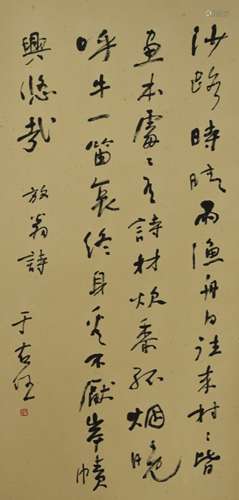 沙路時晴雨漁舟日往來村〻皆
畫本處〻有詩材炊黍孤烟晚
呼牛一笛哀終身看不厭岸幘
興悠哉 放翁詩
于右任